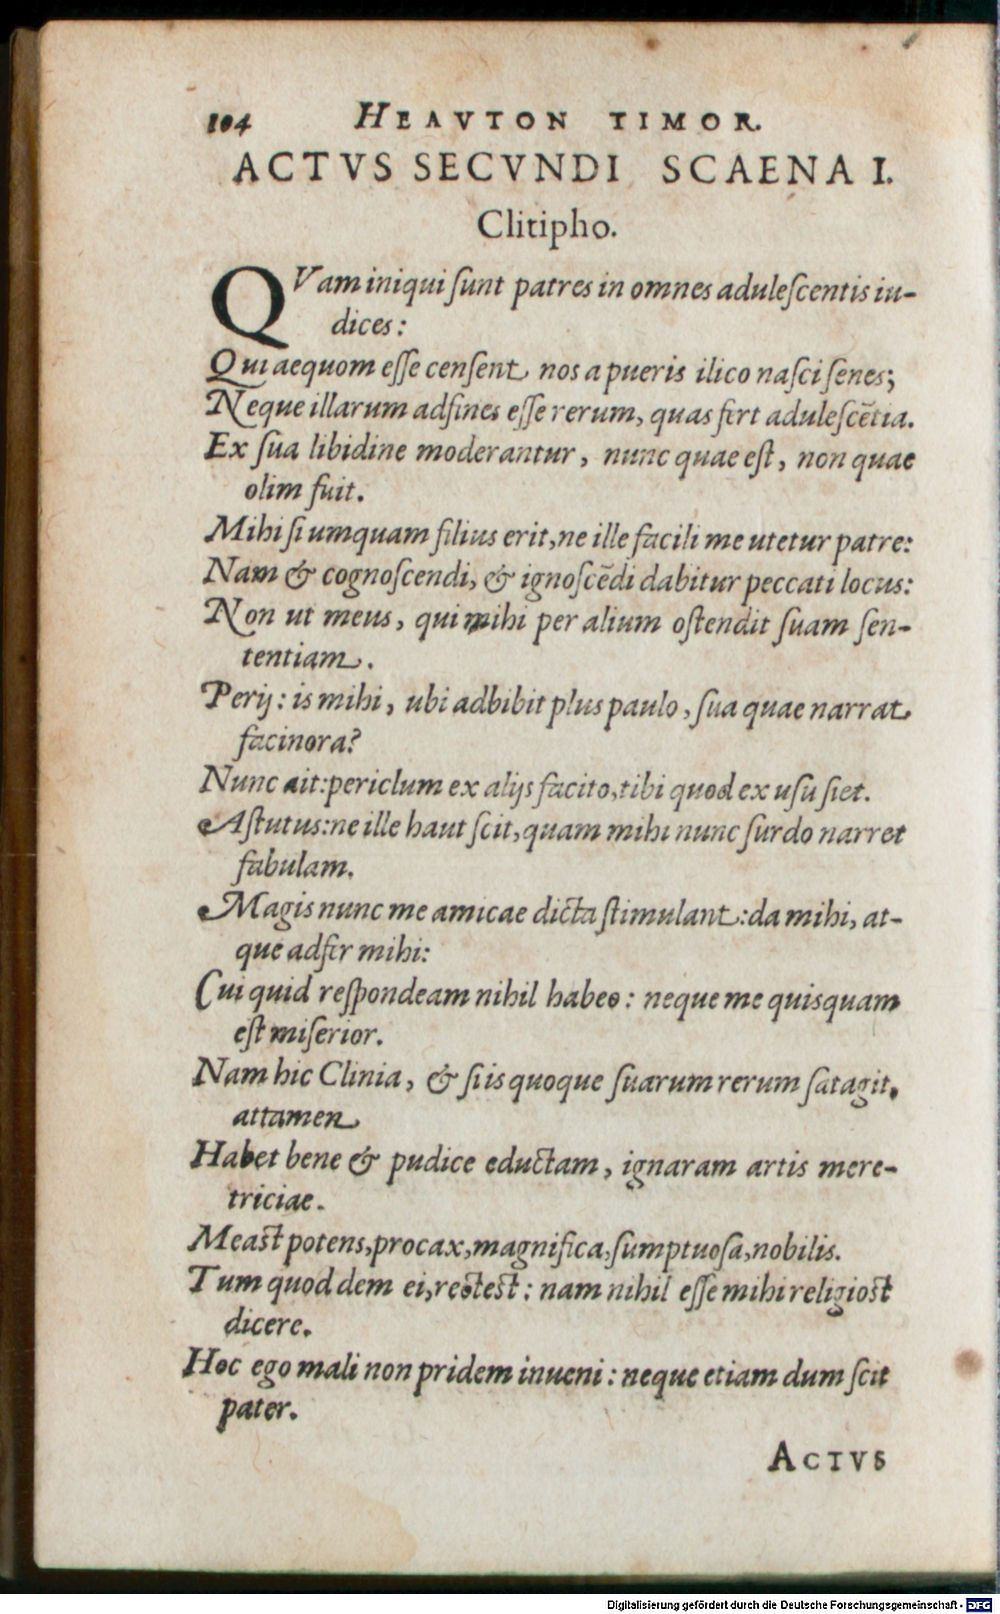 104 HEAVTON TIMOR.
ACTVS SECVNDI SCAENA I.
Clitipho.
QVam iniqui ſunt patres in omnes aduleſcentis iu-
dices:
Qui aequom eſſe cenſent nos a pueris ilico naſci ſenes;
Neque illarum adfines eſſe rerum, quas fert aduleſcẽtia.
Ex ſua libidine moderantur, nunc quae eſt, non quae
olim fuit.
Mihi ſi umquam filius erit, ne ille facili me utetur patre:
Nam & cognoſcendi, & ignoſcẽdi dabitur peccati locus:
Non ut meus, qui mihi per alium oſtendit ſuam ſen-
tentiam.
Perij: is mihi, ubi adbibit plus paulo, ſua quae narrat
facinora?
Nunc ait: periclum ex alijs facito, tibi quod ex uſu ſiet.
Aſtutus: ne ille haut ſcit, quam mihi nunc ſurdo narret
fabulam.
Magis nunc me amicae dicta ſtimulant: da mihi, at-
que adfer mihi:
Cui quid reſpondeam nihil habeo: neque me quisquam
eſt miſerior.
Nam hic Clinia, & ſi is quoque ſuarum rerum ſatagit,
attamen
Habet bene & pudice eductam, ignaram artis mere-
triciae.
Meaſt potens, procax, magnifica, ſumptuoſa, nobilis.
Tum quod dem ei, recteſt: nam nihil eſſe mihi religioſt
dicere.
Hoc ego mali non pridem inueni: neque etiam dum ſcit
pater.
ACTVS
Digitalisierung gefördert durch die Deutsche Forschungsgemeinschaft - DFG